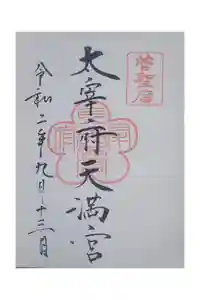 菅聖庿
太宰府天満宮
令和二年九月十三日